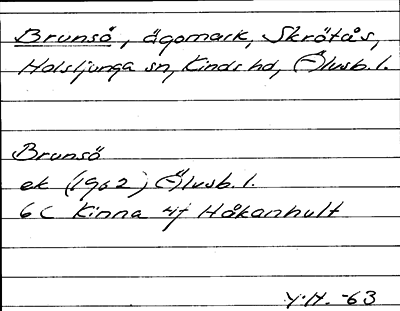 Brunsö, ägomark, Skrötås,
Holsljunga sn, Kinds hd, Älvsb. l.
Brunsö
ek (1962) Älvsb. l.
6C Kinna 4j Håkanhult
Y.H. -63